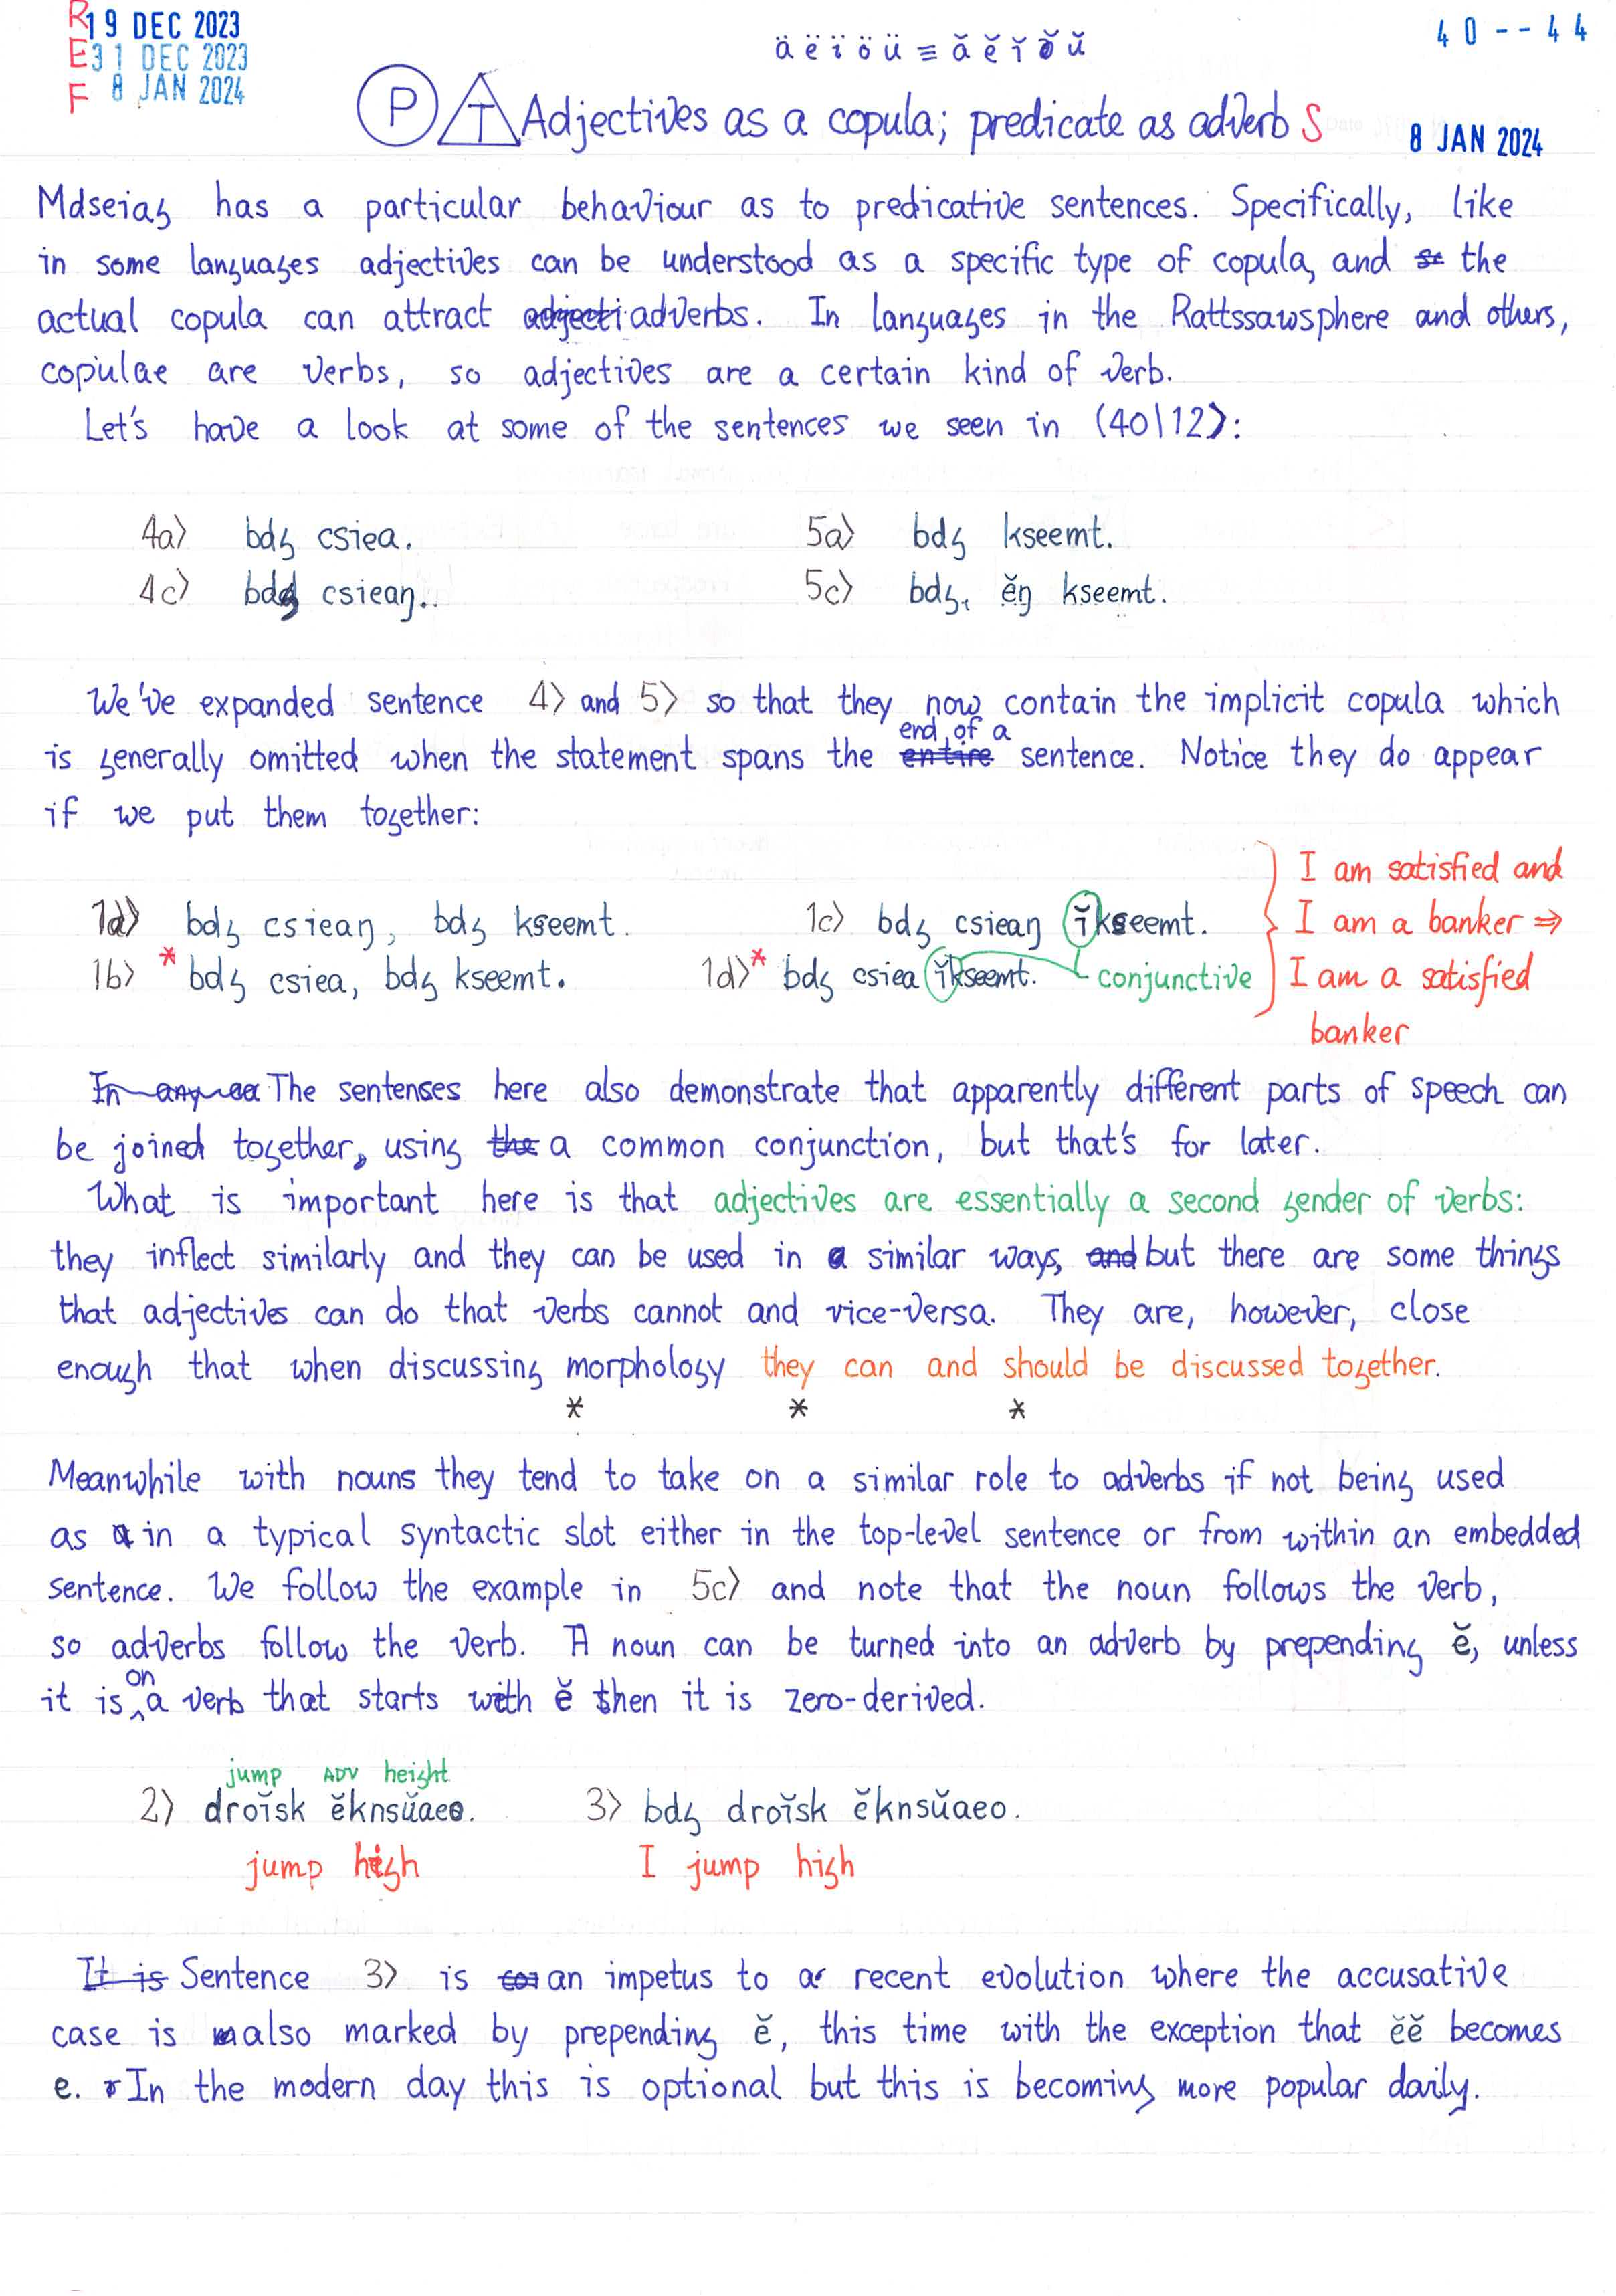 REF
19 DEC 2023
31 DEC 2023
8 JAN 2024
ä ë ï ö ü ≡ ă ĕ ĭ ŏ ŭ
40--44
P T Adjectives as a copula; predicate as adverb S
8 JAN 2024
Mdseiag has a particular behaviour as to predicative sentences. Specifically, like
in some languages adjectives can be understood as a specific type of copula, and the
actual copula can attract adverbs. In languages in the Rattssawsphere and others,
copulae are verbs, so adjectives are a certain kind of verb.
Let's have a look at some of the sentences we seen in (40|12):
4a) bdg csiea.
5a) bdg kseemt.
4c) bdg csieaŋ.
5c) bdg ĕŋ kseemt.
We've expanded sentence 4) and 5) so that they now contain the implicit copula which
is generally omitted when the statement spans the end of a sentence. Notice they do appear
if we put them together:
1a) bdg csieaŋ, bdg kseemt.
1c) bdg csieaŋ ĭkseemt.
1b) * bdg csiea, bdg kseemt.
1d) * bdg csiea ĭkseemt.
conjunctive
I am satisfied and
I am a banker ⇒
I am a satisfied
banker
The sentenses here also demonstrate that apparently different parts of speech can
be joined together, using a common conjunction, but that's for later.
What is important here is that adjectives are essentially a second gender of verbs:
they inflect similarly and they can be used in similar ways, but there are some things
that adjectives can do that verbs cannot and vice-versa. They are, however, close
enough that when discussing morphology they can and should be discussed together.
* * *
Meanwhile with nouns they tend to take on a similar role to adverbs if not being used
as in a typical syntactic slot either in the top-level sentence or from within an embedded
sentence. We follow the example in 5c) and note that the noun follows the verb,
so adverbs follow the verb. A noun can be turned into an adverb by prepending ĕ, unless
it is on a verb that starts with ĕ then it is zero-derived.
jump ADV height
2) droĭsk ĕknsŭaeo.
3) bdg droĭsk ĕknsŭaeo.
jump high
I jump high
Sentence 3) is an impetus to a recent evolution where the accusative
case is also marked by prepending ĕ, this time with the exception that ĕĕ becomes
e. In the modern day this is optional but this is becoming more popular daily.